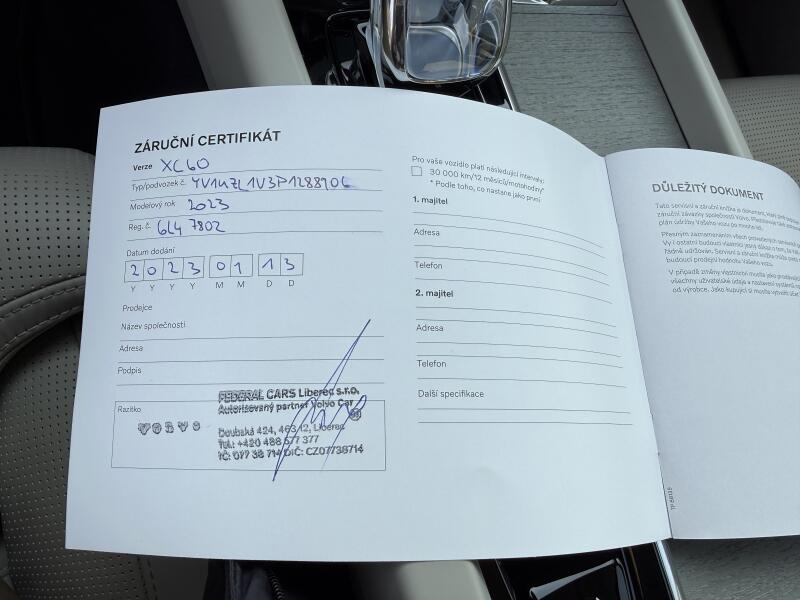 ZÁRUČNÍ CERTIFIKÁT
Verze XC60
Typ/podvozek č. YV1UZL1V3P1288906
Modelový rok 2023
Reg. č. 6L4 7802
Datum dodání
2 0 2 3 0 1 1 3
Y Y Y Y M M D D
Prodejce
Název společnosti
Adresa
Podpis
Razítko
VOLVO
FEDERAL CARS Liberec s.r.o.
Autorizovaný partner Volvo Car
Doubská 424, 463 12, Liberec
Tel.: +420 488 577 377
IČ: 077 38 714 DIČ: CZ07738714
Pro vaše vozidlo platí následující intervaly:
30 000 km/12 měsíců/motohodiny*
* Podle toho, co nastane jako první
1. majitel
Adresa
Telefon
2. majitel
Adresa
Telefon
Další specifikace
DŮLEŽITÝ DOKUMENT
Tato servisní a záruční knížka je dokument, který
záruční závazky společnosti Volvo.
plán údržby Vašeho vozu po mnoho let.
Přesným zaznamenáním všech provedených servisních
Vy i ostatní budoucí vlastníci jasný důkaz o tom, že
řádně udržován. Servisní a záruční knížka může
budoucí prodejní hodnotu Vašeho vozu.
V případě změny vlastnictví musíte jako prodávající
všechny uživatelské údaje a nastavení systémů
od výrobce. Jako kupující si musíte vytvořit účet